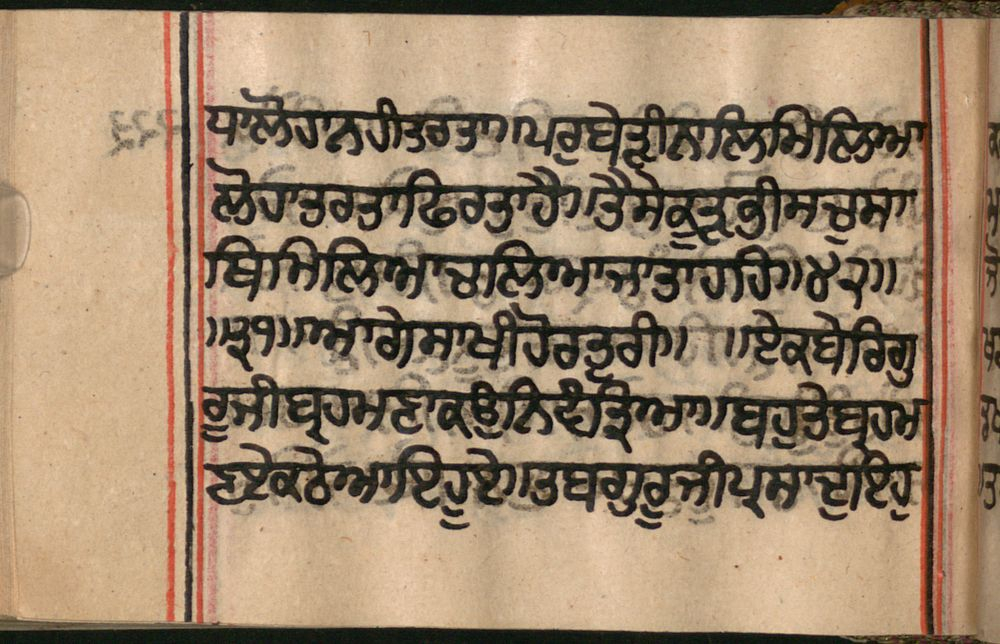 ਧਾਲੋਹਾਨਹੀਤਰਤਾ॥ਪਰੁਬੇੜੀਨਾਲਿਮਿਲਿਆ
ਲੋਹਾਤਰਤਾਫਿਰਤਾਹੈ॥ਤੈਸੇਕੂੜੁਭੀਸਚੁਸਾ
ਥਿਮਿਲਿਆਚਲਿਆਜਾਤਾਹਹਿ॥੪੨॥
॥੩੧॥ਆਗੇਸਾਖੀਹੋਰਤੁਰੀ॥ ॥ਏਕਬੇਰਿਗੁ
ਰੂਜੀਬ੍ਰਹਮਣਾਕਉਨਿਵੰਦਿਆ॥ਬਹੁਤੇਬ੍ਰਹਮ
ਣਏਕਠੇਆਇਹੂਏ॥ਤਬਗੁਰੂਜੀਪ੍ਰਸਾਦੁਇਹੁ